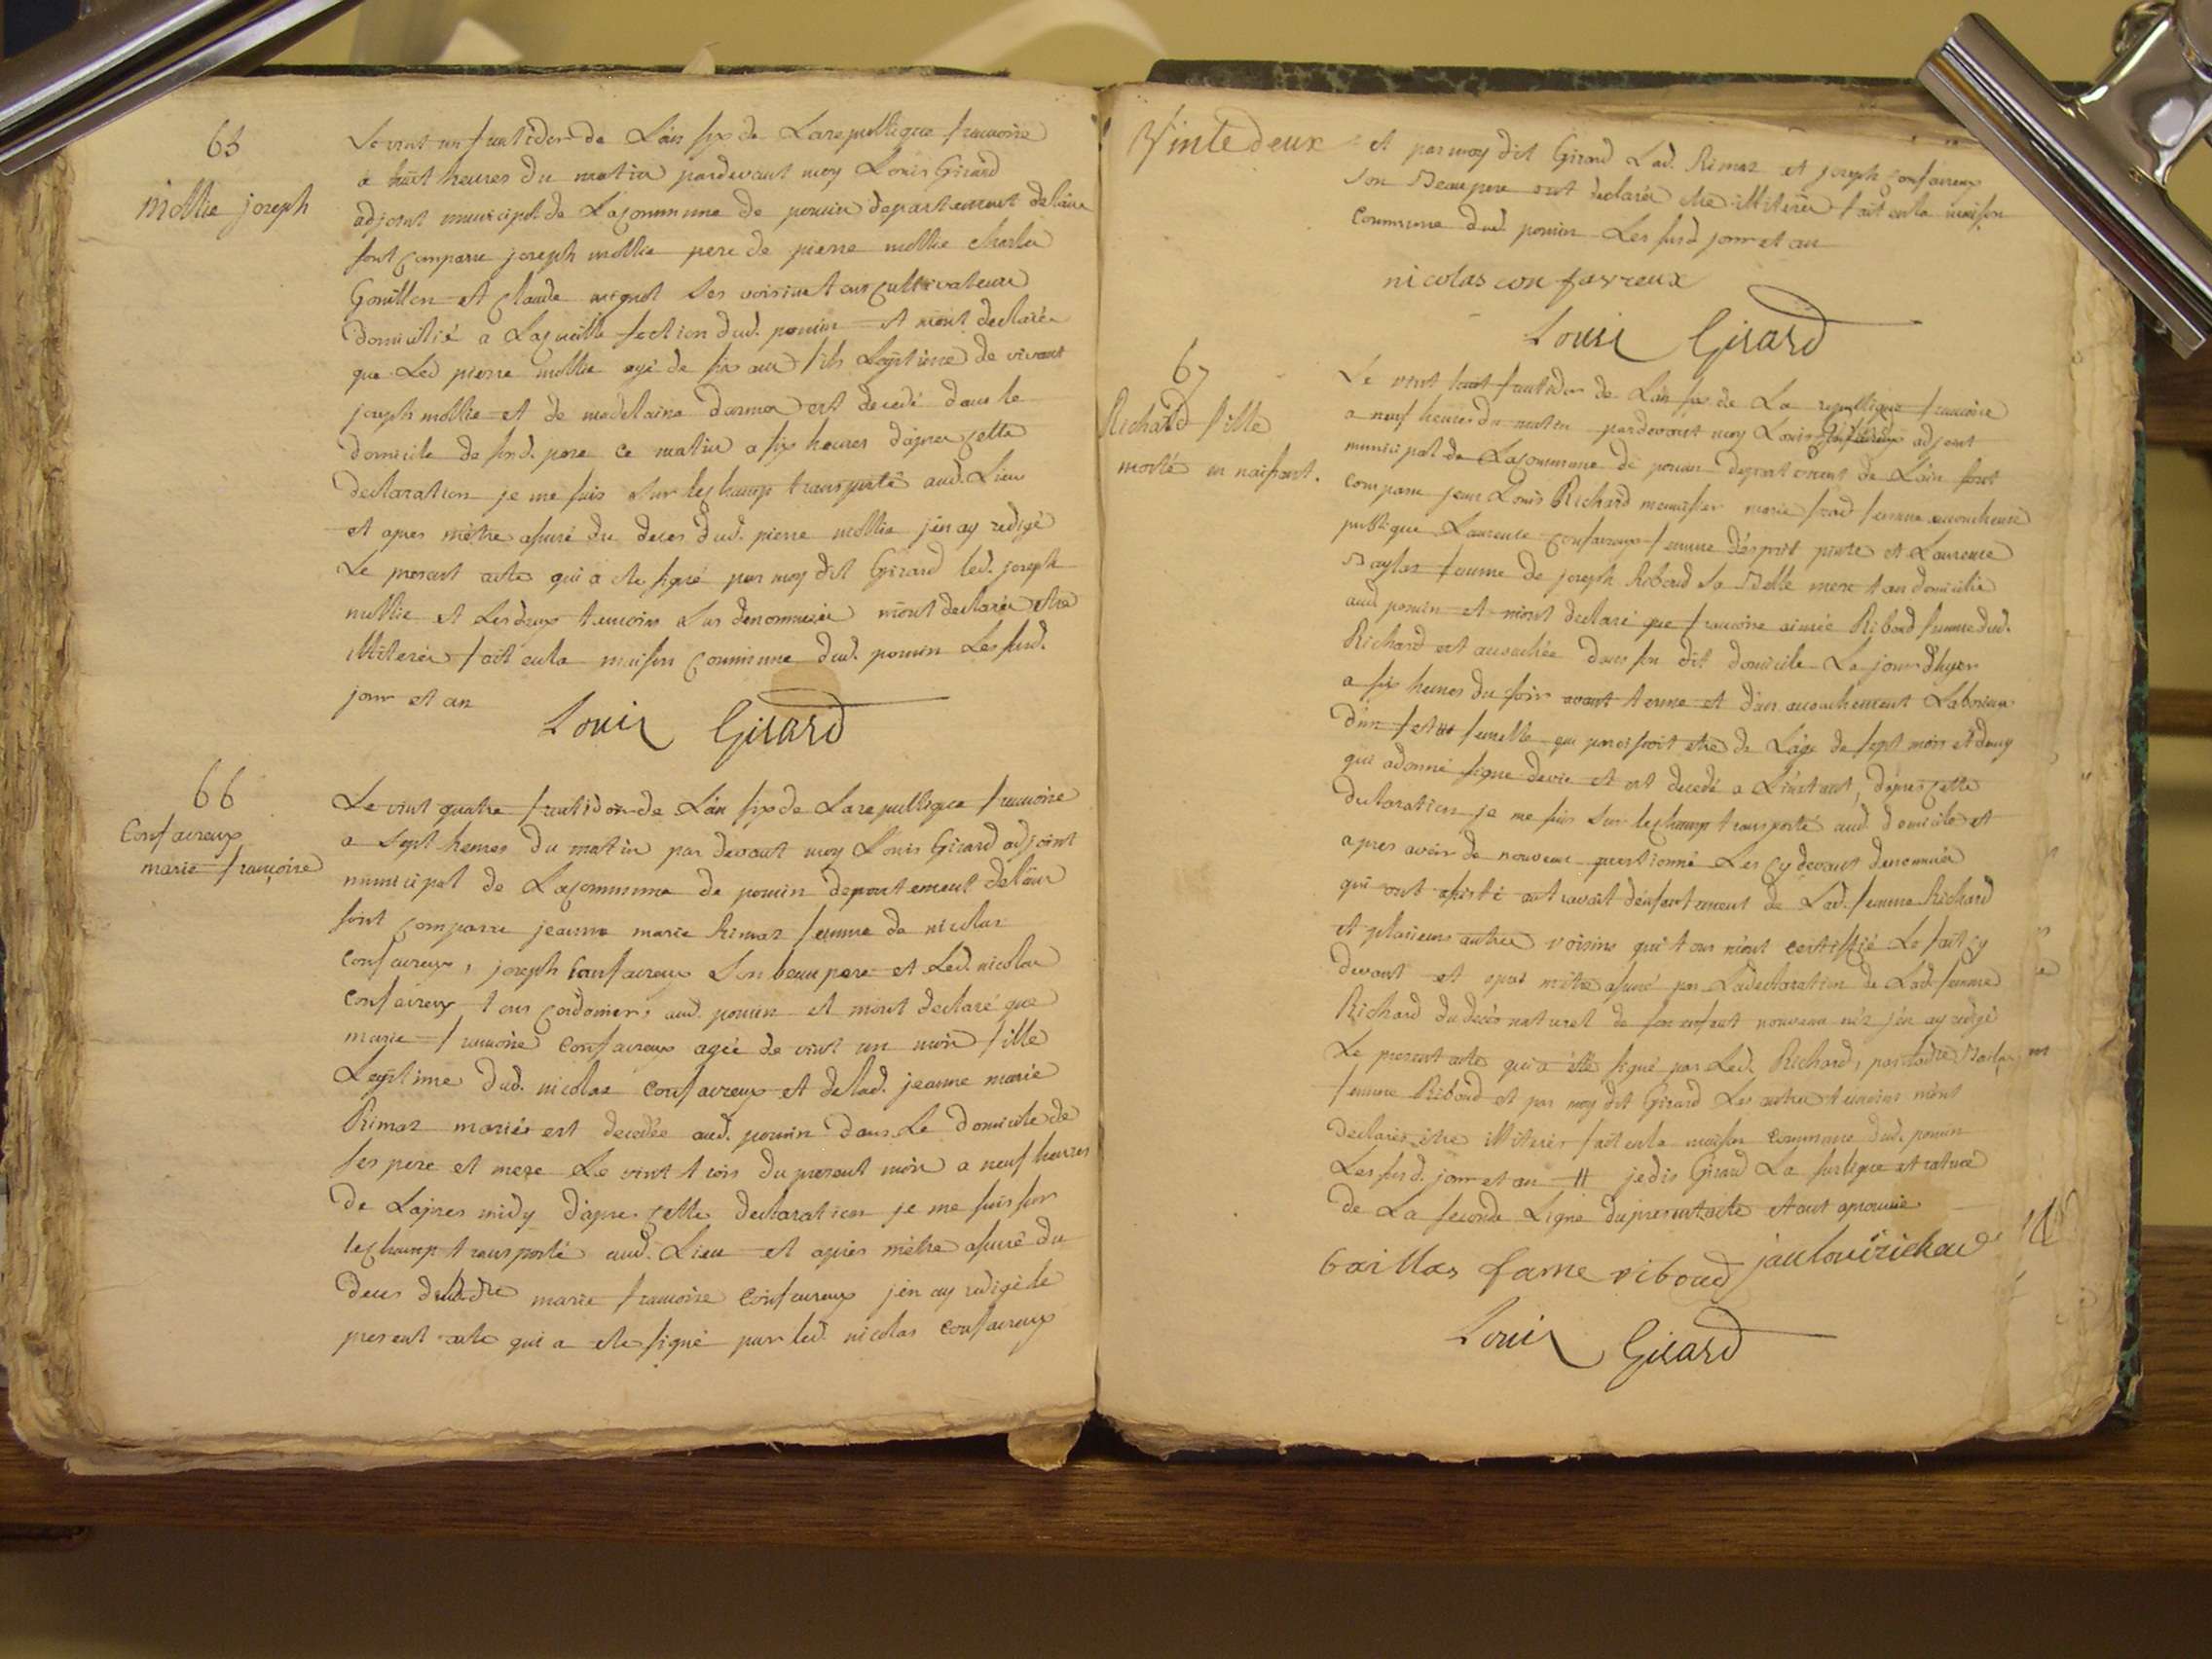 65
mollie joseph
Le vint un fructidor de Lán six de La republique francoise
a huit heures du matin pardevant moy Louis Girard
adjoint municipal de La commune de poncin departement de láin
sont comparu joseph mollie pere de pierre mollie charles
Gouillon et claude mignot ses voisins tous cultivateurs
domicilié a La cueille section dud. poncin et mont declarés
que Led pierre mollie agé de six ans fils Legitime de vivant
joseph mollie et de madelaine darmes est decedé dans le
domicile de sond. pere ce matin a six heures dápres cette
declaration je me suis sur le champ transporté aud. Lieu
et apres métre assuré du deces dud. pierre mollie jén ay redigé
Le present acte qui a ete signé par moy dit Girard led. joseph
mollie et Les deux temoins sus denommées mónt declarés etre
illiterés fait en la maison commune dud. poncin Les susd.
jour et an
Louis Girard
66
Confavreux
marie francoise
Le vint quatre fructidor de Lán six de La republique francoise
a sept heures du matin par devant moy Louis Girard adjoint
municipal de La commune de poncin departement de láin
sont comparu jeanne marie Rimaz femme de nicolas
Confavreux, joseph Confavreux son beau pere et Led. nicolas
Confavreux tous cordoniers aud. poncin et mónt declaré que
marie francoise Confavreux agée de vint un mois fille
Legitime dud. nicolas Confavreux et de lad. jeanne marie
Rimaz mariés est decedée aud. poncin dans Le domicile de
ses pere et mere Le vint trois du present mois a neuf heures
de Lapres midy dápres cette declaration je me suis sur
le champ transporté aud. Lieu et apres métre assuré du
deces de ladte marie francoise Confavreux jén ay redigé le
present acte qui a ete signé par led. nicolas Confavreux
Vinte deux
et par moy dit Girard Lad. Rimaz et joseph Confavreux
son Beau pere ont declarés etre illiterés fait en la maison
Commune dud. poncin Les susd jour et an
nicolas confavreux
Louis Girard
67
Richard fille
morte en naissant.
Le vint huit fructidor de Lán six de La republique francoise
a neuf heures du matin pardevant moy Louis adjoint
municipal de La commune de poncin departement de Láin sont
comparu jean Louis Richard menuisier marie femme accoucheuse
publique Laurence Confavreux femme désprit et Laurence
Baylas femme de joseph Riboud sa Belle mere tous domicilié
aud poncin et mónt declaré que francoise aimée Riboud femme dud.
Richard est accouchée dans son dit domicile Le jour dhyer
a six heures du soir avant terme et dún accouchement Laborieux
dún fetus femelle qui paroissoit etre de Láge de sept mois et demy
qui a donné signe de vie et est decedé a Línstant, dápres cette
declaration je me suis sur le champ transporté aud. domicile et
apres avoir de nouveau questionné Les cy devant denommés
qui ont assisté au travail dénfantement de Lad. femme Richard
et plusieurs autres voisins qui tous mónt certiffié Le fait cy
devant et apres métre assuré par La declaration de Lad. femme
Richard du decés naturel de son enfant nouveau née jén ay redigé
Le present acte qui a été signé par Led. Richard, par ladte Baylas
femme Riboud et par moy dit Girard Les autres temoins mónt
declarés étre illiterés fait en la maison commune dud. poncin
Les susd. jour et an # je dis Girard La surligne et rature
de La seconde Ligne du present acte etant aprouvée
baillas fame riboud janlouirichard
Louis Girard